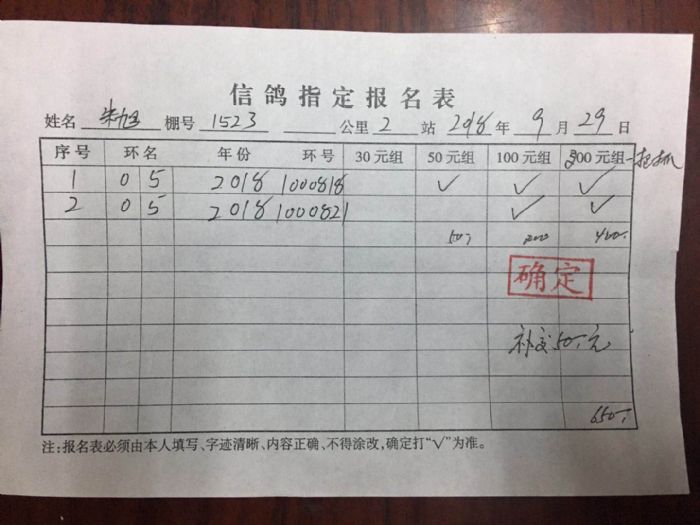 信鸽指定报名表
姓名 朱旭 棚号 1523 公里 2 站 2018 年 9 月 29 日
序号 环名 年份 环号 30元组 50元组 100元组 200元组 一把抓
1 05 2018 1000818 ✓ ✓ ✓
2 05 2018 1000821 ✓ ✓
50 200 400
确定
补交50元
650
注:报名表必须由本人填写、字迹清晰、内容正确、不得涂改,确定打“√”为准。